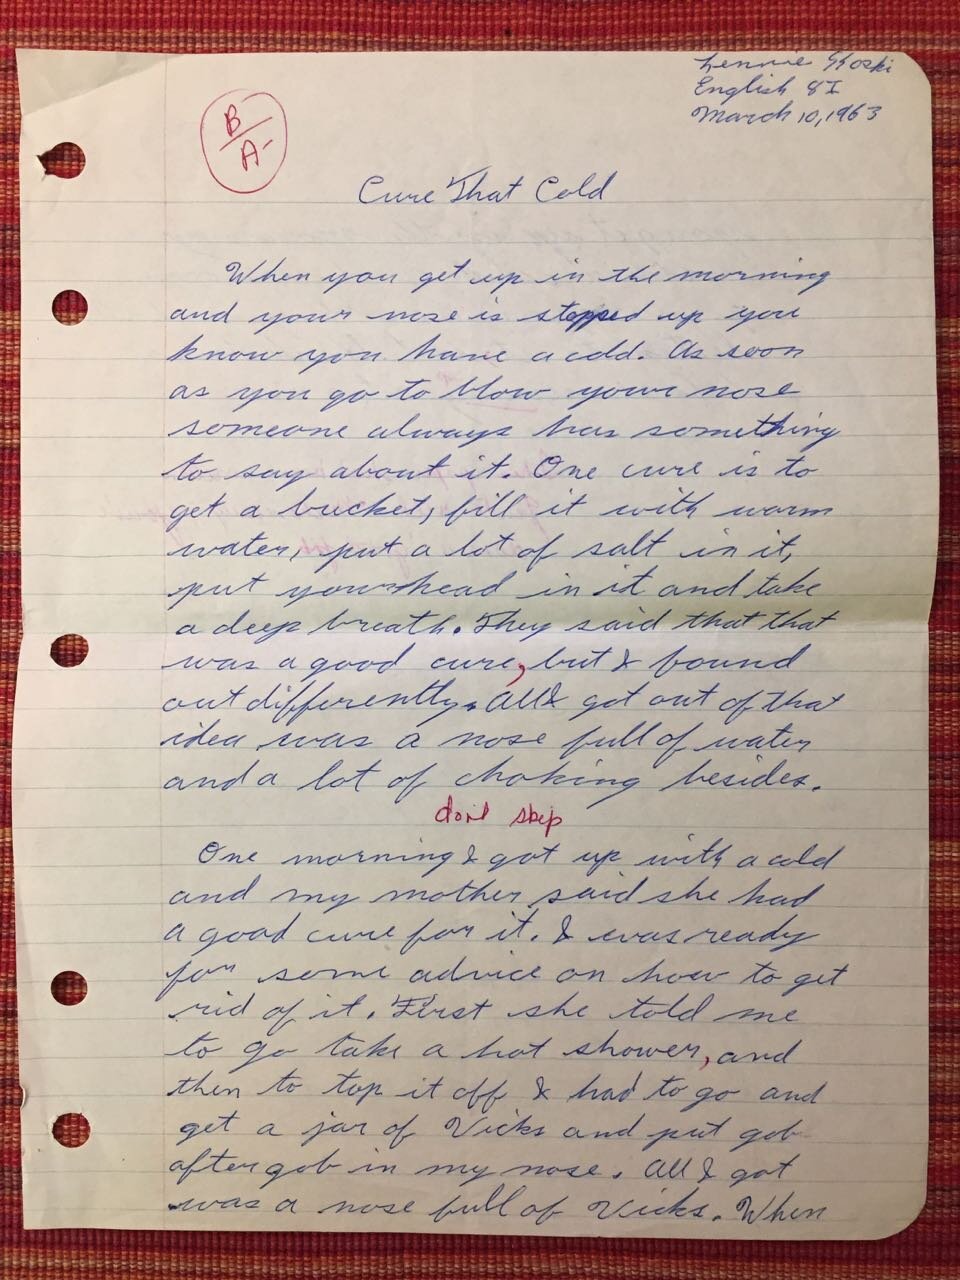 Lennie Skoski
English 8I
March 10, 1963
B/A-
Cure That Cold
When you get up in the morning
and your nose is stopped up you
know you have a cold. As soon
as you go to blow your nose
someone always has something
to say about it. One cure is to
get a bucket, fill it with warm
water, put a lot of salt in it,
put your head in it and take
a deep breath. They said that that
was a good cure, but I found
out differently. All I got out of that
idea was a nose full of water
and a lot of choking besides.
don't skip
One morning I got up with a cold
and my mother said she had
a good cure for it. I was ready
for some advice on how to get
rid of it. First she told me
to go take a hot shower, and
then to top it off I had to go and
get a jar of Vicks and put gob
after gob in my nose. All I got
was a nose full of Vicks. When